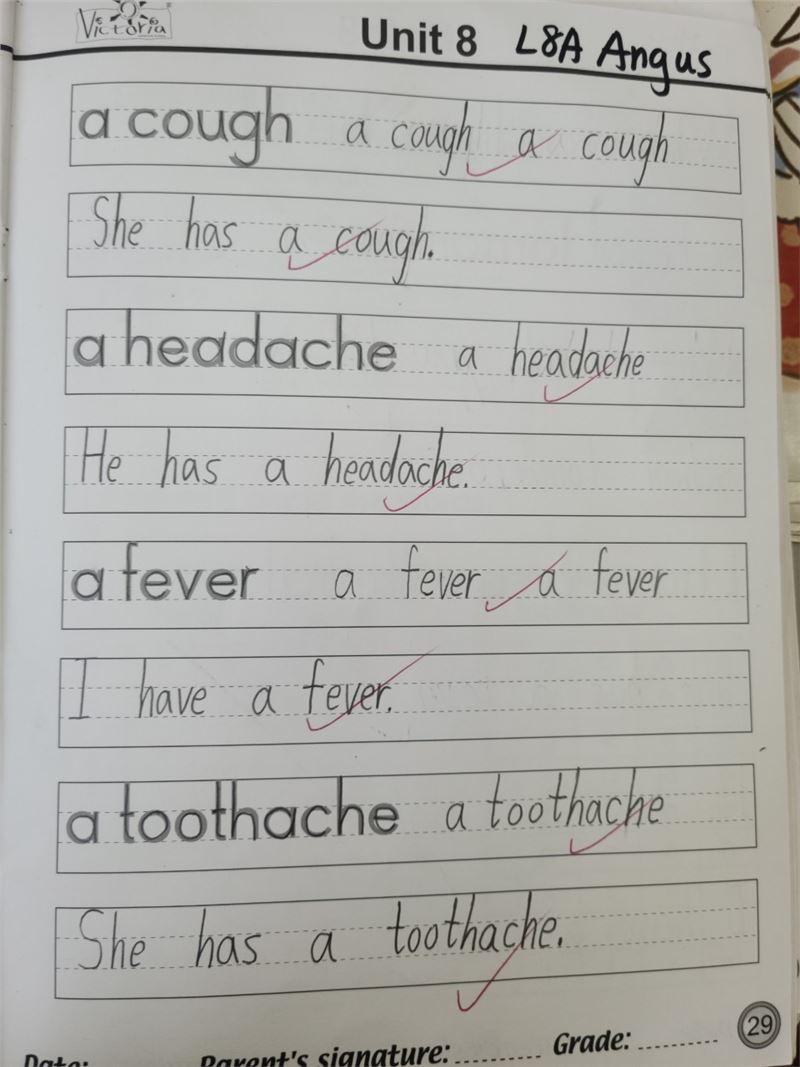 Victoria
Unit 8 L8A Angus
a cough a cough a cough
She has a cough.
a headache a headache
He has a headache.
a fever a fever a fever
I have a fever.
a toothache a toothache
She has a toothache.
29
Date: Parent's signature: ......... Grade: .........